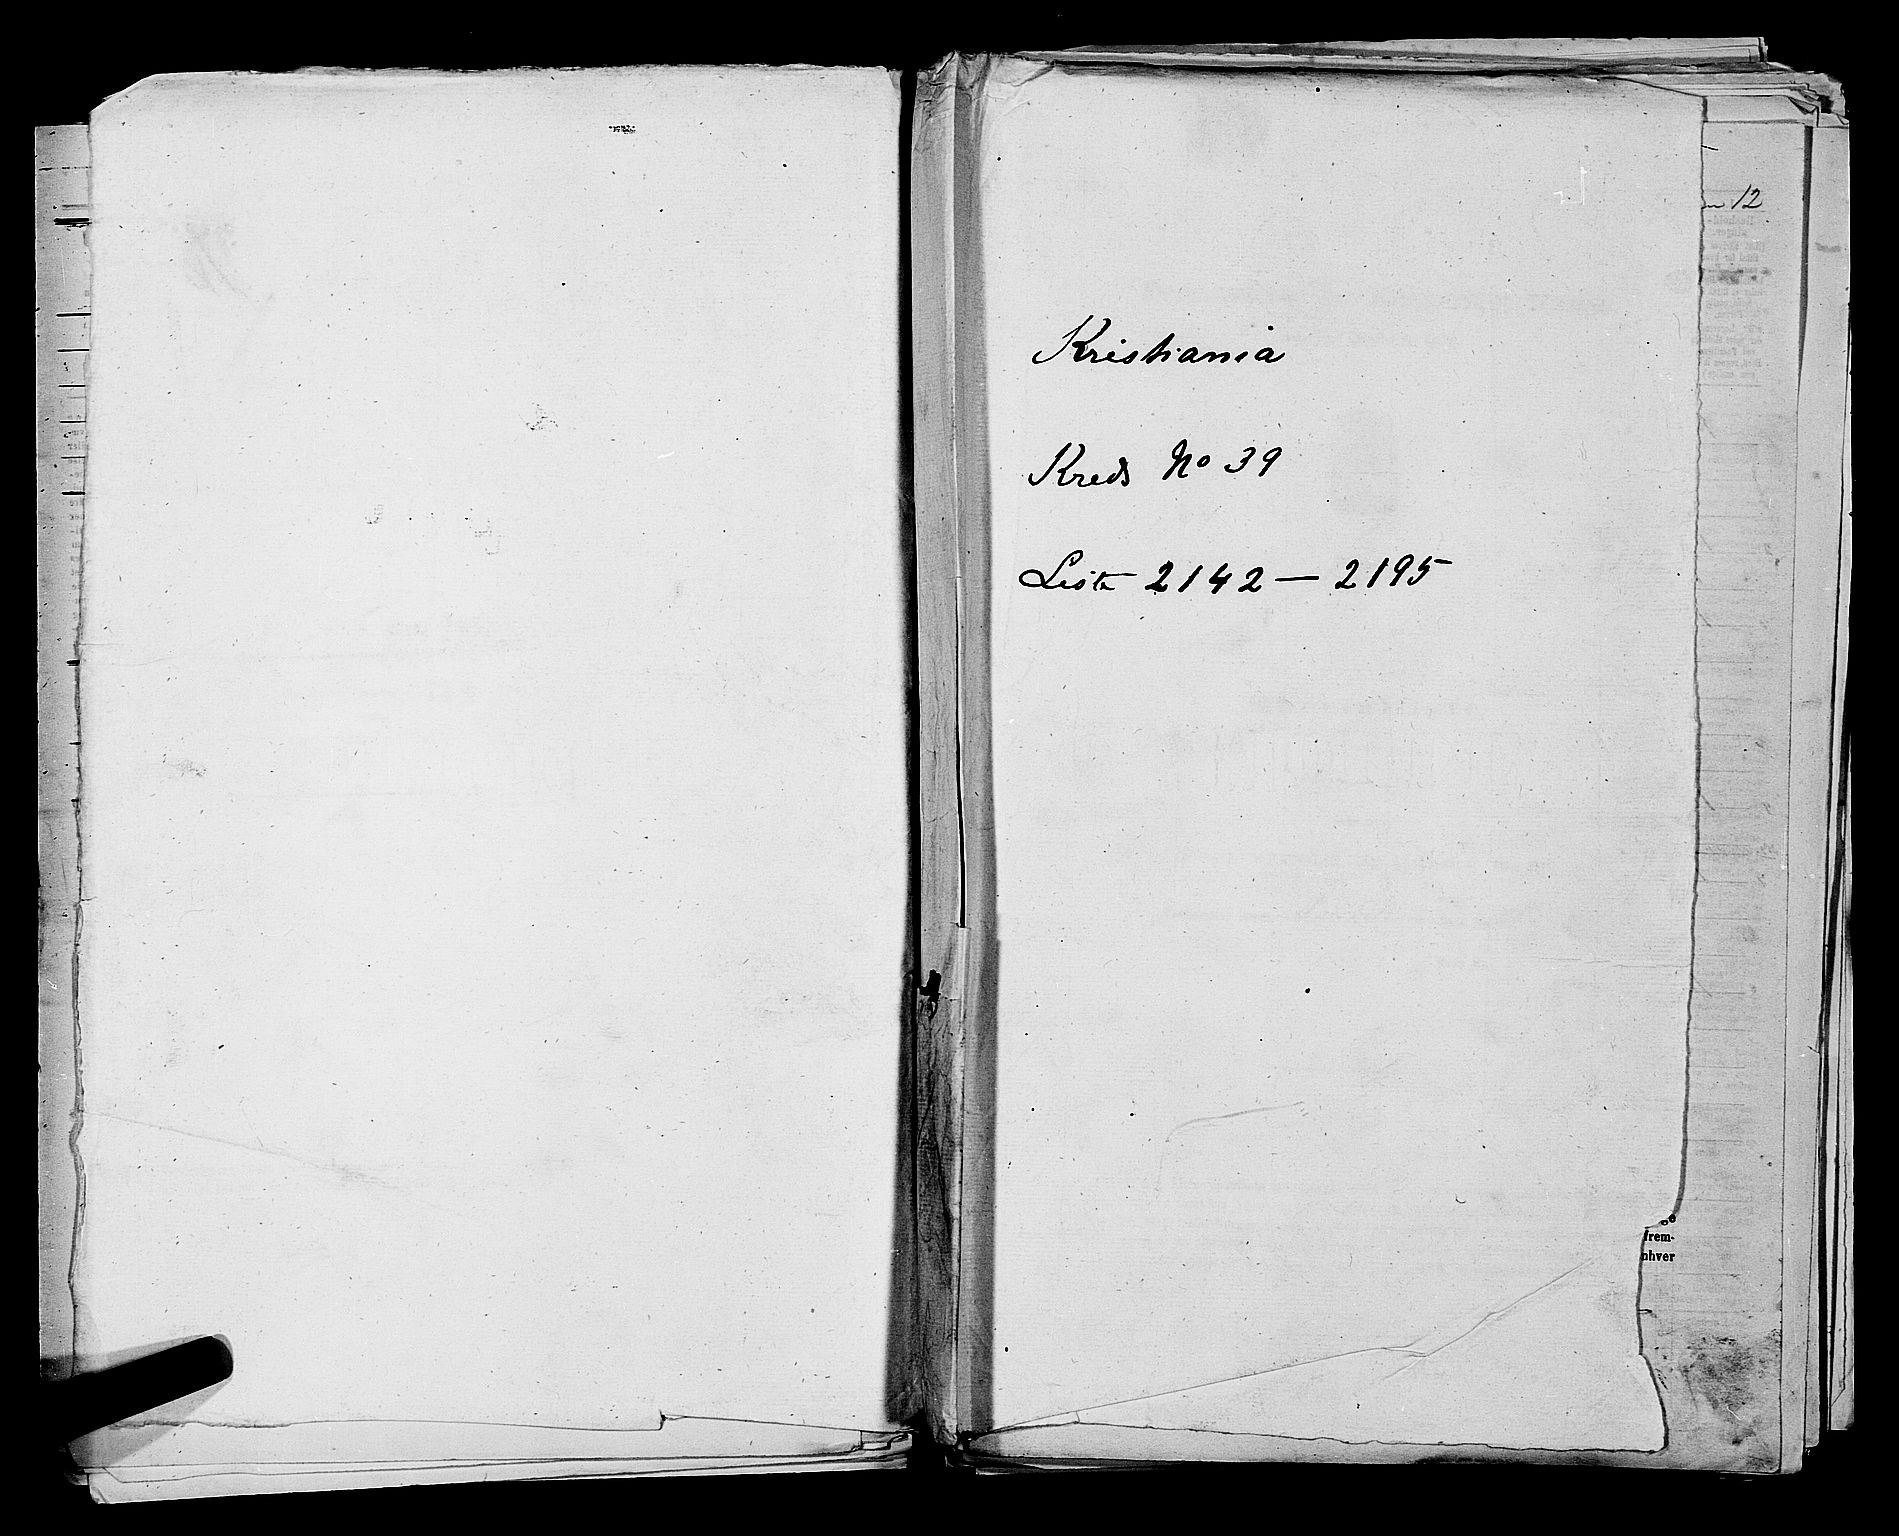 12
Kristiania
Kreds No 39
Liste 2142 — 2195
frem-
nhver